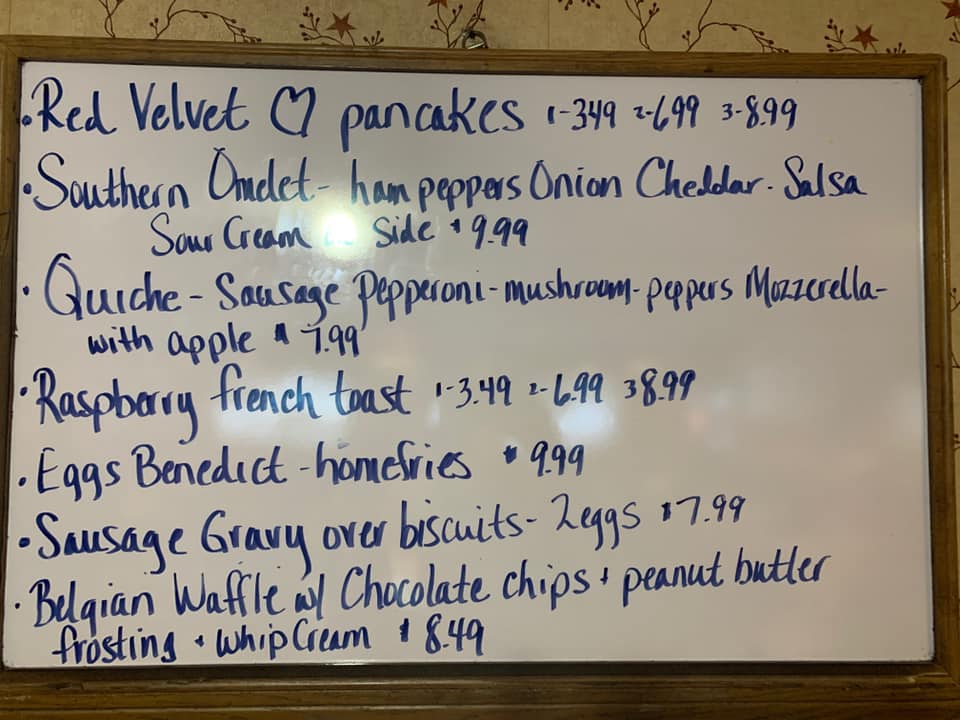 • Red Velvet ♡ pancakes 1-349 2-699 3-8.99
• Southern Omelet - ham peppers Onion Cheddar - Salsa
Sour Cream Side $9.99
• Quiche - Sausage Pepperoni - mushroom - peppers Mozzerella -
with apple $7.99
• Raspberry french toast 1-3.49 2-6.99 3 8.99
• Eggs Benedict - homefries $9.99
• Sausage Gravy over biscuits - 2 eggs $7.99
• Belgian Waffle w/ Chocolate chips + peanut butter
frosting + Whip Cream $8.49